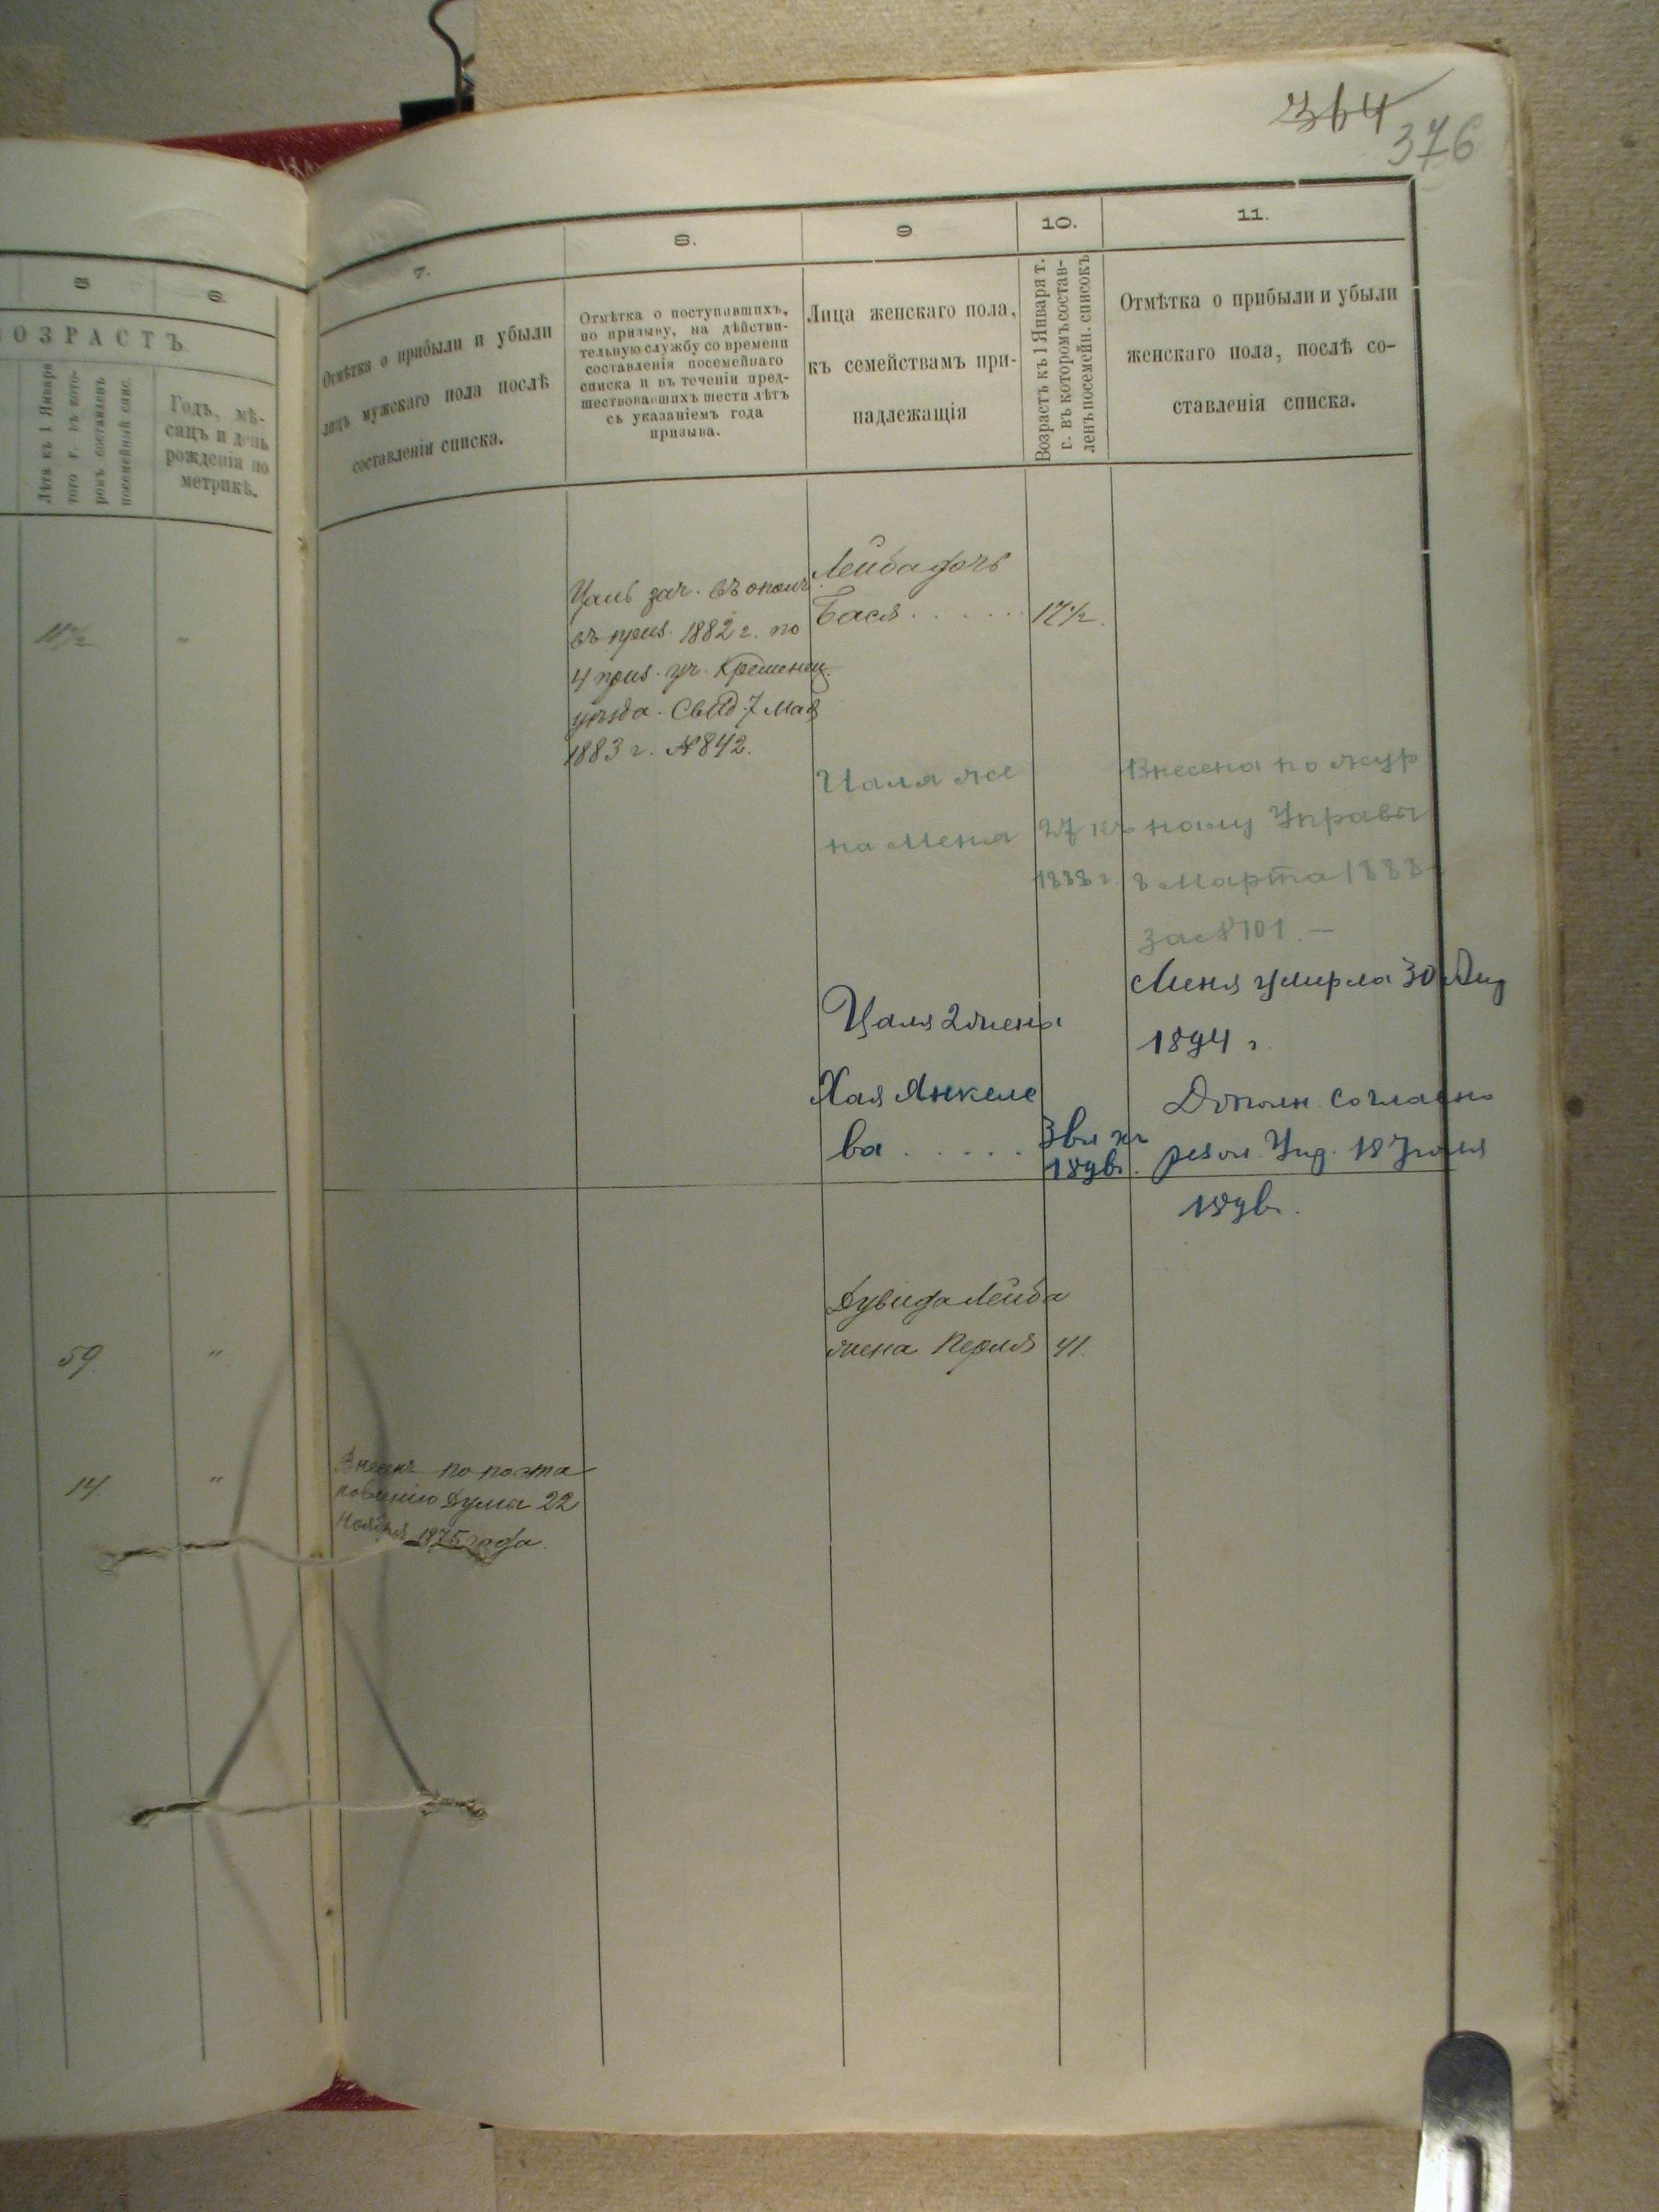 364
376
5
6
ВОЗРАСТЪ
Лѣта къ 1 Января
того г. въ кото-
ромъ составленъ
посемейный спис.
Годъ, мѣ-
сяцъ и день
рожденія по
метрикѣ.
11 1/2 "
59. "
14. "
7.
8.
9
10.
11.
Отмѣтка о прибыли и убыли
лицъ мужскаго пола послѣ
составленія списка.
Отмѣтка о поступившихъ,
по призыву, на дѣйстви-
тельную службу со времени
составленія посемейнаго
списка и въ теченіи пред-
шествовавшихъ шести лѣтъ
съ указаніемъ года
призыва.
Лица женскаго пола,
къ семействамъ при-
надлежащія
Возрастъ къ 1 Января т.
г. въ которомъ состав-
ленъ посемейн. списокъ
Отмѣтка о прибыли и убыли
женскаго пола, послѣ со-
ставленія списка.
Цаль зач. въ ополч.
въ приз. 1882 г. по
4 приз. уч. Кременец.
уѣзда. Свид. 7 Мая
1883 г. № 842.
Лейба дочь
Бася . . . . . . 17 1/2.
Цаля же
на Меня
27 къ
1888 г.
Внесена по жур
налу Управы
8 Марта 1888
за № 101. —
Меня умерла 30
1894 г.
Цаля 2 жена
Хая Янкеле
ва . . . . .
36 л къ
1896 г.
Дополн. согласно
резол. Упр. 18 Іюля
1896 г.
Дувида Лейба
жена Перля 41.
Внесенъ по поста
новленію Думы 22
Ноября 1875 года.